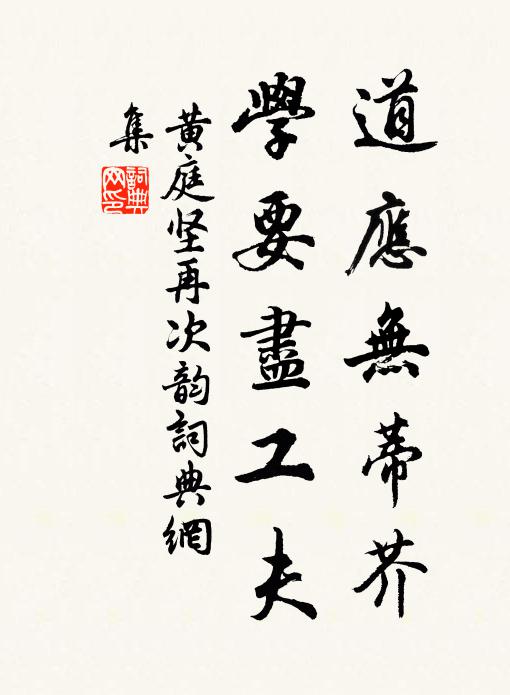 道應無蒂芥
學要盡工夫
黄庭坚再次韵詞典網
集
詞典
网印